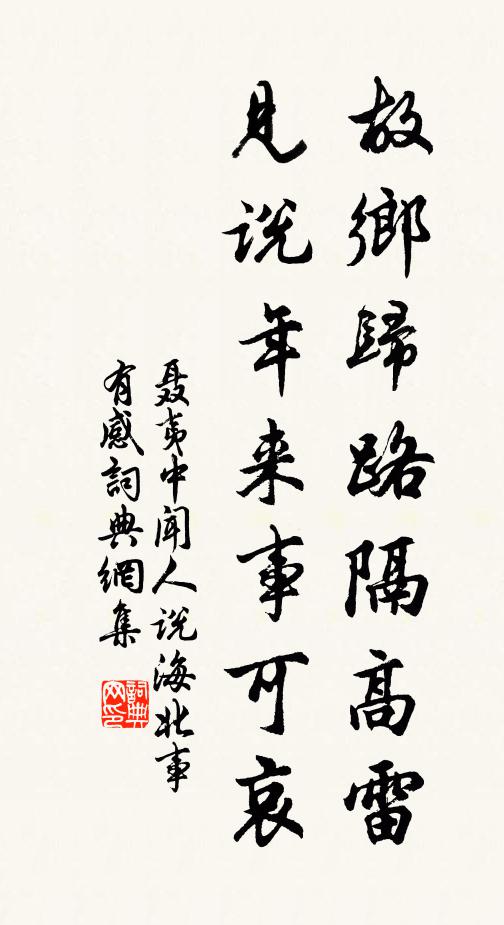 故鄉歸路隔高雷
見說年来事可哀
聂夷中闻人说海北事
有感詞典網集
詞典
网印